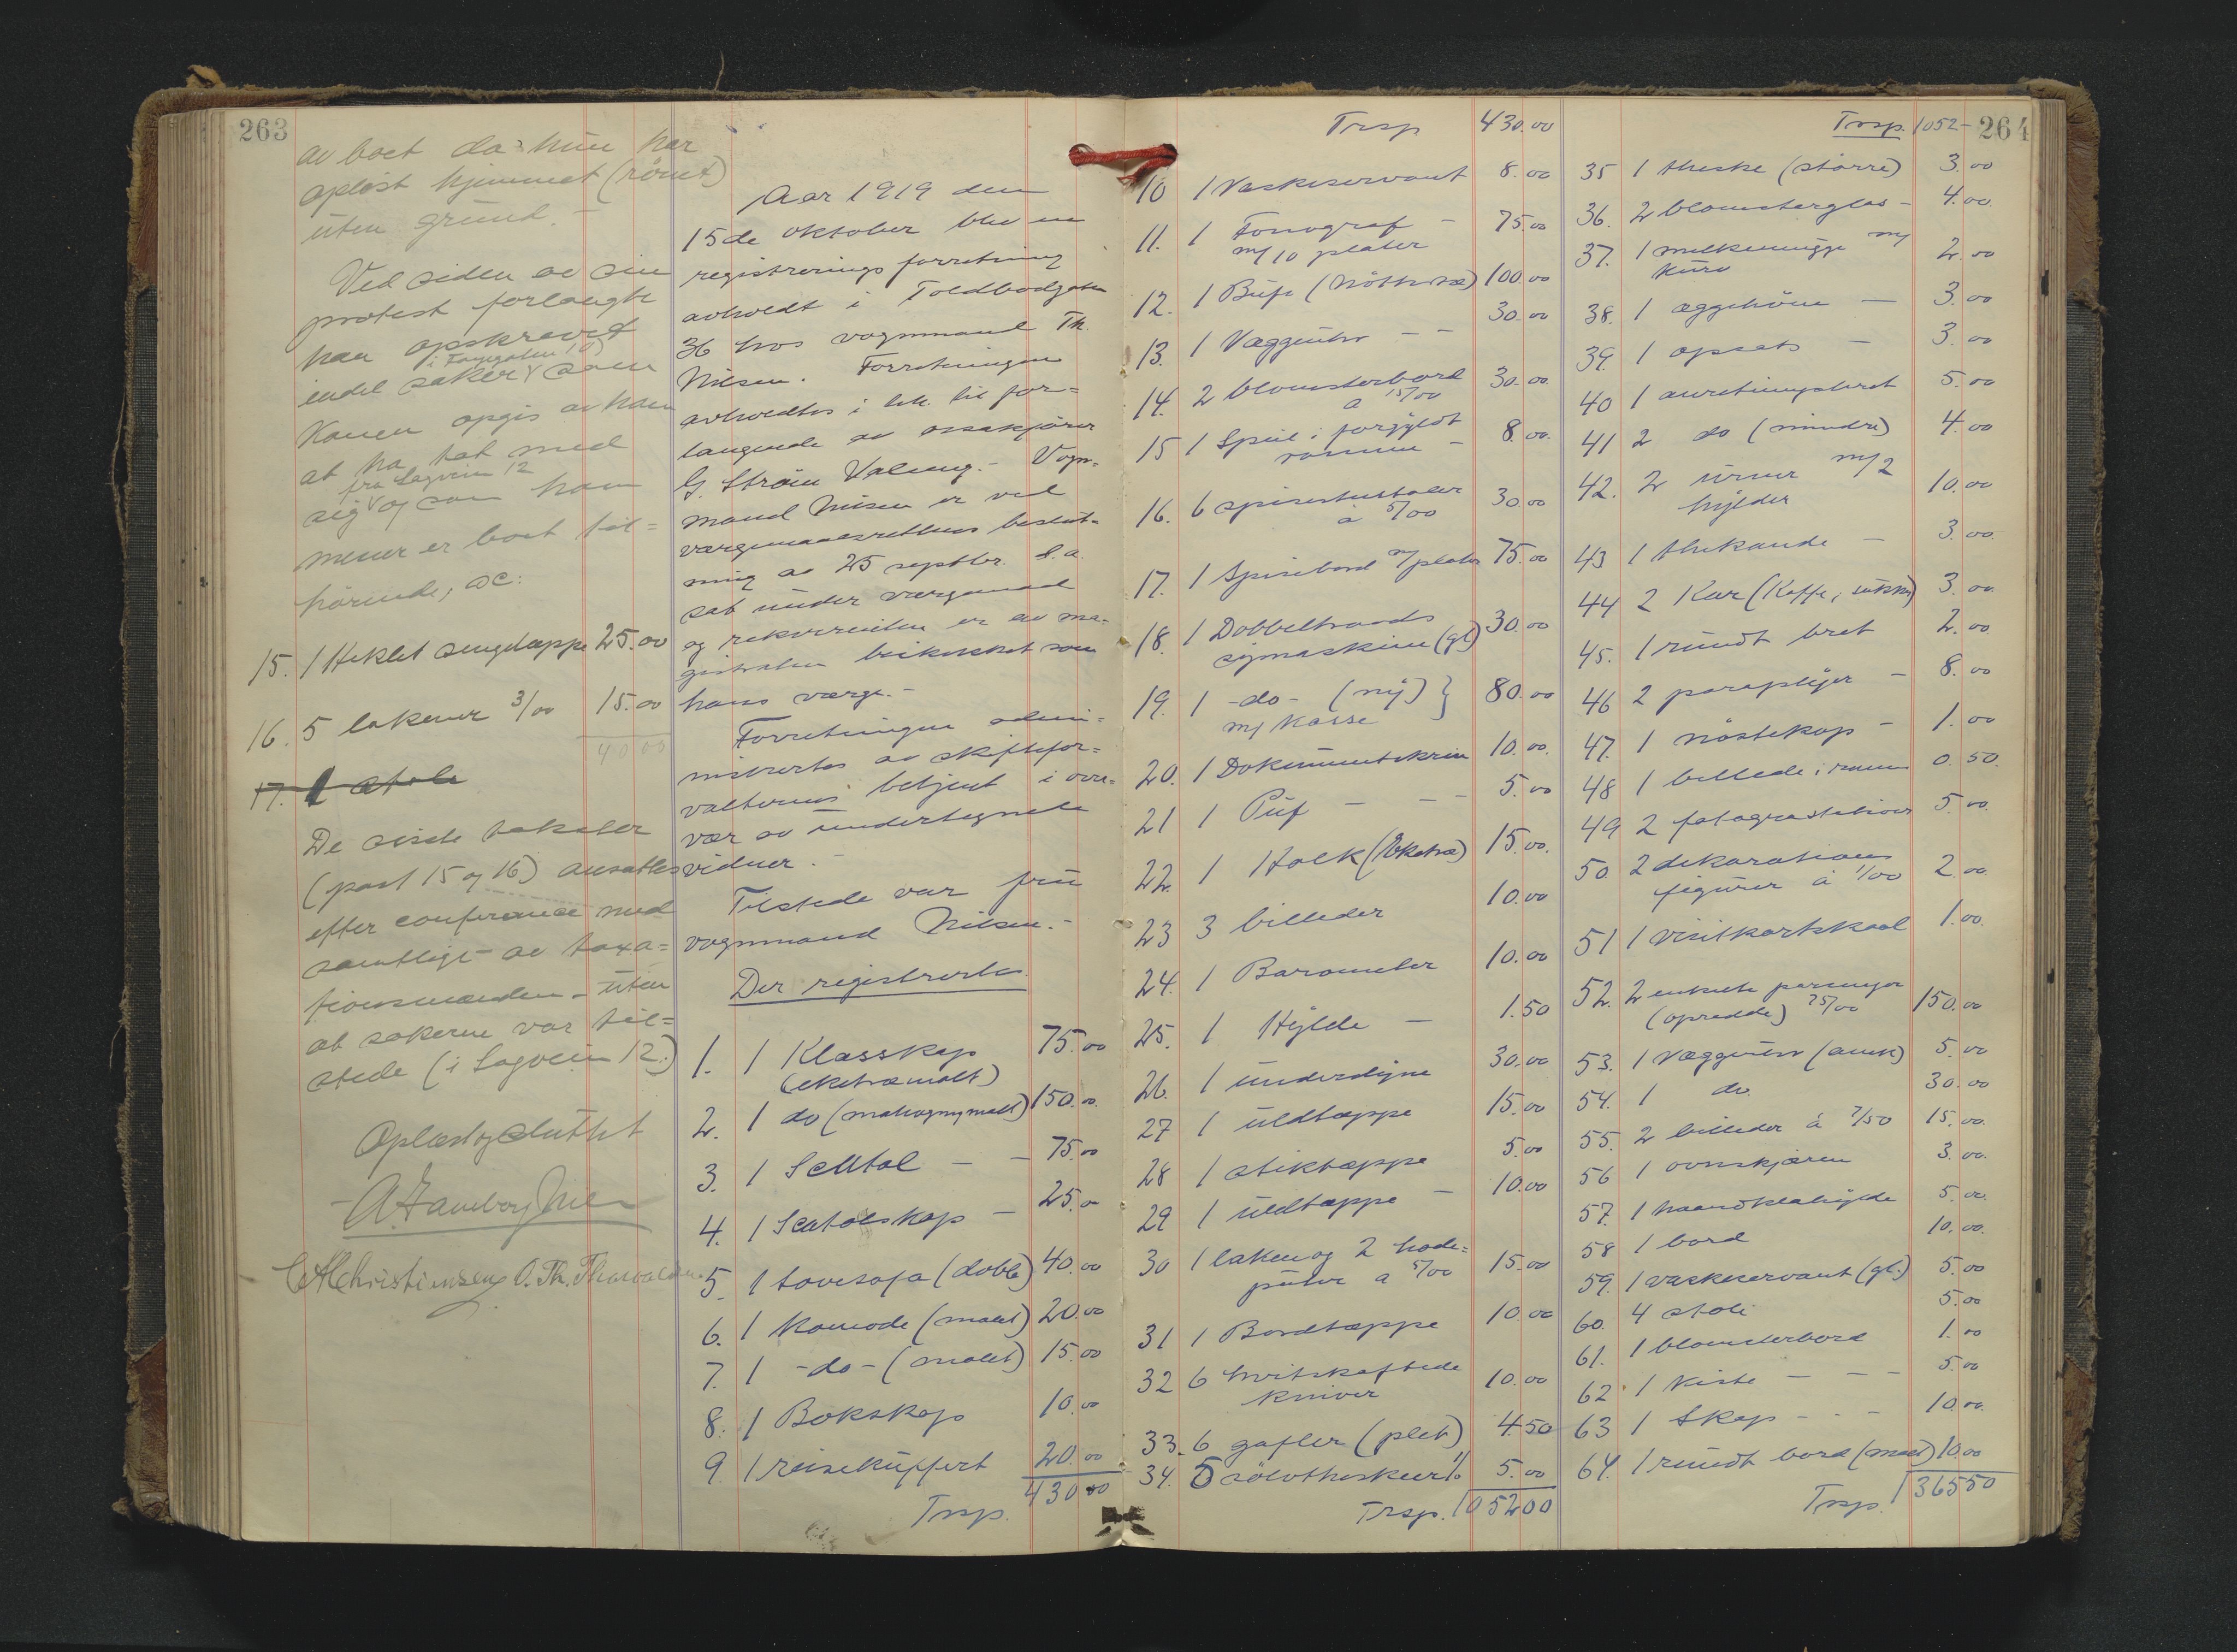 263
av boet da hun har
opløst hjemmet (römt)
uten grund. -
Ved siden av sin
protest forlangte
han opskrevet
i Fayegaten 10)
endel saker som
Konen opgis av ham
at ha tat med
fra Sagveien 12
sig og som han
mener er boet til=
hørende, oc:
15. 1 Heklet sengetæppe 25.00
16. 5 lakener 3/00 15.00
40 00
17. 1 stole
De siste takster
(post 15 og 16) ansattes
efter conferance med
samtlige av taxa=
tionsmænden - uten
at sakerne var til=
stede (i Sagveien 12.)
Oplæst og sluttet
CAChristiansen O. Th. Thorvaldsen
Aar 1919 den
15de oktober blev en
registrerings forretning
avholdt i Toldbodgaten
36 hos vognmand Th.
Nilsen. Forretningen
avholdtes i h.h. til for=
langende av orsakfører
G. Strøm Valeng. - Vogn=
mand Nilsen er ved
vergemaalsrettens beslut=
ning av 25 septbr. d.a.
sat under vergemaal
og rekvirenten er av ma=
gistraten beskikket som
hans værge. -
Forretningen admi=
nistrertes av skiftefor=
valterens betjent i over=
vær av undertegnede
vidner. -
Tilstede var fru
vognmand Nilsen. -
Der registrertes
1. 1 Klasskap 75.00
(eketræmalt)
2. 1 do (mahognymalt) 150.00
3. 1 Scltol - - 75.00
4. 1 Scatolskap - 25.00
5. 1 sovesofa (doble) 40.00
6. 1 Komode (malt) 20.00
7. 1 -do- (malt) 15.00
8. 1 Bokskap 10.00
9. 1 reisekuffert 20.00
Trsp. 430 00
Trsp 430.00
10 1 Vaskeservant 8.00
11. 1 Fonograf - 75.00
m/10 plater
12. 1 Bufe (Nöttetræ) 100.00
13. 1 Væggeuhr - - 30.00
14. 2 blomsterbord 30.00
a 15/00
15 1 Speil i forgyldt 8.00
ramme -
16. 6 spisestuestoler 30.00
à 5/00
17. 1 Spisebord m/plater 75.00
18. 1 Dobbeltraads 30.00
symaskine (gl)
19. 1 -do- (ny) } 80.00
m/ Kasse
20. 1 Dokumentskrin 10.00
21 1 Puf - - - 5.00
22. 1 Stolk (Eketræ) 15.00.
23 3 billeder 10.00
24. 1 Barometer 10.00
25. 1 Hylde - 1.50
26. 1 underdyne 30.00
27 1 uldtæppe 15.00
28 1 stiktæppe 5.00
29 1 uldtæppe - 10.00
30 1 laken og 2 hode= 15.00
puter a 5/00
31 1 Bordtæppe 10.00
32 6 hvitskaftede 10.00
kniver
33. 6 gafler (plet) 4.50
34. 5 sölvtheskeer 1/ 5.00
Trsp. 1052 00
Trsp. 1052- 264
35 1 theske (større) 3.00
36. 2 blomsterglas - 4.00
37. 1 melkemugge m/ 2.00
Kurv
38. 1 æggehöne - 3.00
39. 1 opsats - 3.00
40 1 anretningsbret 5.00
41 2 do (mindre) 4.00
42. 2 urner m/2 10.00
hylder
43 1 thekande - 3.00
44 2 Kar (Kaffe, sukker) 3.00
45. 1 rundt bret 2.00
46 2 paraplyer - 8.00
47. 1 nöstekop - 1.00
48 1 billede i ramme 0.50
49 2 fotografistativer 5.00
50. 2 dekorations 2.00
figurer à 1/00
51 1 visitkortskaal 1.00
52. 2 enkelte senger
(opredde) 75/00 150.00
53. 1 væggeuhr (amk) 5.00
54. 1 do. 30.00
55. 2 billeder à 7/50 15.00
56 1 ovnskjærm 3.00
57. 1 haandklæhylde 5.00
58 1 bord 10.00
59. 1 vaskeservant (gl.) 5.00
60. 4 stole 5.00
61. 1 blomsterbord 1.00
62 1 kiste - - - 5.00
63 1 Skap - - - 10.00
64. 1 rundt bord (malt) 10.00
Trsp. 1365 50